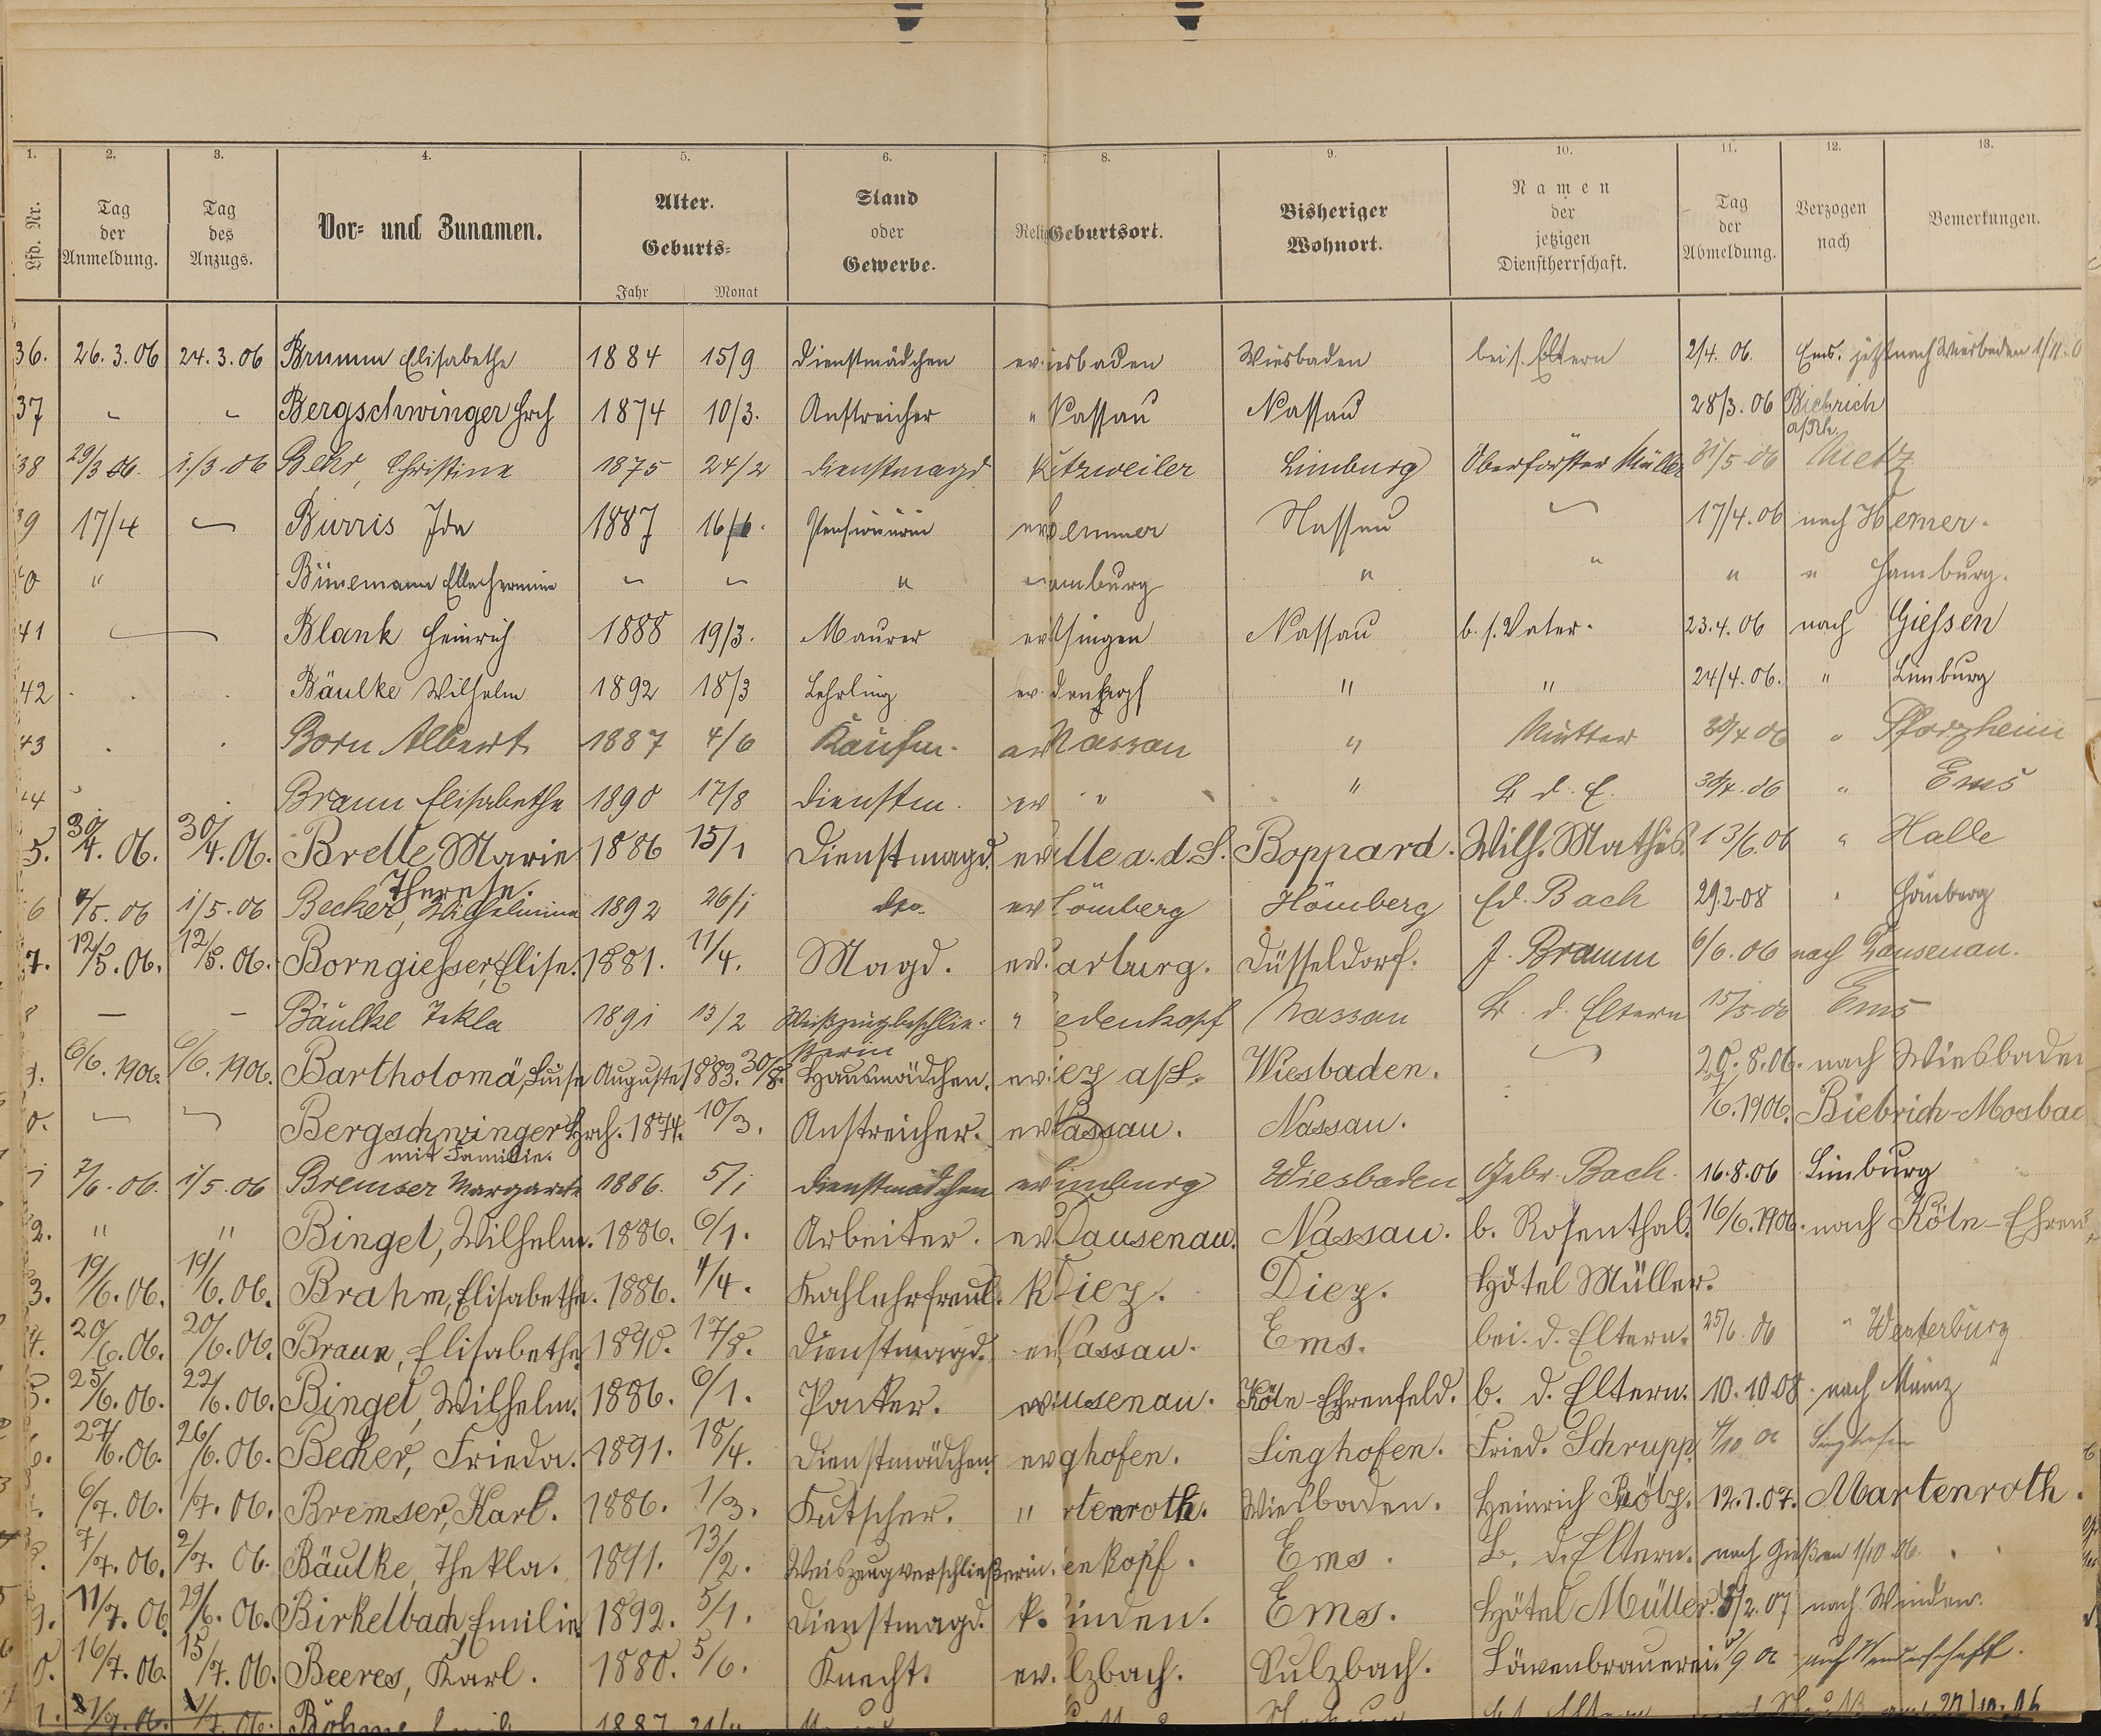 1. 2. 3. 4. 5. 6. 7 8. 9. 10. 11. 12. 13.
Lfd. Nr. Tag der Anmeldung. Tag des Anzugs. Vor- und Zunamen. Alter. Geburts- Jahr Monat Stand oder Gewerbe. Relig Geburtsort. Bisheriger Wohnort. Namen der jetzigen Dienstherrschaft. Tag der Abmeldung. Verzogen nach Bemerkungen.
36. 26.3.06 24.3.06 Brumm Elisabethe 1884 15/9 Dienstmädchen ev. iesbaden Wiesbaden bei s. Eltern 2/4. 06. Ems. jetzt nach Wiesbaden 1/11.0
37 " " Bergschwinger Hrch 1874 10/3. Anstreicher " Nassau Nassau 28/3. 06 Biebrich
a/Rh.
38 29/3 06. 1/3-06 Behr, Christine 1875 24/2 Dienstmagd k Limburg Oberförster Müller 31/5-06 Metz
39 17/4 " Burris Ida 1887 16/6. Pensionärin ev emmer Nassau " 17/4. 06 nach Hemer.
0 " Bünemann " " " " amburg " " " " Hamburg.
41 Blank Heinrich 1888 19/3. Maurer ev Usingen Nassau b. s. Vater. 23.4.06 nach Giessen
42 Bäulke Wilhelm 1892 18/3 Lehrling ev. denkopf " " 24/4. 06. " Limburg
43 Born Albert 1887 4/6 Kaufm. ev Nassau " Mutter 30/4 06 " Pforzheim
44 Braun Elisabethe 1890 17/8 Dienstm. ev " " b d. E. 30/4. 06 " Ems
5. 30/4. 06. 30/4. 06. Brelle, Marie 1886 15/1 Dienstmagd. ev lle a. d. S. Boppard. Wilh. Mathis. 13/6.06 " Halle
Therese.
6 4/5. 06 1/5-06 Becker, Wilhelmine 1892 26/1 dto. ev Hömberg Hömberg Ed. Bach 29.2.08 " Hömberg
7. 12/5. 06. 12/5. 06. Borngiesser, Elise. 1881. 11/4. Magd. ev. arburg. Düsseldorf. J. Bramm 6/6. 06 nach Dausenau.
8 — — Bäulke Tekla 1891 13/2 Weißzeugbeschlie- " edenkopf Nassau b. d. Eltern 15/5-06 Ems
ßerin
9. 6/6. 1906. 6/6. 1906. Bartholomä, Luise Auguste, 1883. 30/8. Hausmädchen. ev. iez a/L. Wiesbaden. " 20. 8. 06. nach Wiesbaden
0. " " Bergschwinger Hrch. 1874. 10/3. Anstreicher. ev Nassau. Nassau. 7/6. 1906. Biebrich-Mosbac
mit Familie.
1 7/6. 06. 1/5. 06 Bremser Margarete 1886. 5/1 Dienstmädchen ev Limburg Wiesbaden Gebr. Bach. 16.8.06 Limburg
2. " " Bingel, Wilhelm. 1886. 6/1. Arbeiter. ev Dausenau. Nassau. b. Rosenthal. 16/6. 1906. nach Köln-Ehren
3. 19/6. 06. 19/6. 06. Brahm, Elisabethe. 1886. 4/4. Kochlehrfreul. k Diez. Diez. Hôtel Müller.
4. 20/6. 06. 20/6. 06. Braun, Elisabethe 1890. 17/8. Dienstmagd. ev Nassau. Ems. bei. d. Eltern. 25/6. 06 " Westerburg
5. 25/6. 06. 22/6. 06. Bingel, Wilhelm. 1886. 6/1. Packer. ev. usenau. Köln-Ehrenfeld. b. d. Eltern. 10. 10. 08. nach Mainz
6. 27/6. 06. 26/6. 06. Becker, Frieda. 1891. 18/4. Dienstmädchen. ev ghofen. Singhofen. Fried. Schrupp. 4/10 06 Singhofen
7. 6/7. 06. 1/7. 06. Bremser, Karl. 1886. 1/3. Kutscher. " rtenroth. Wiesbaden. Heinrich 12.1.07. Martenroth.
8. 7/7. 06. 2/7. 06. Bäulke, Thekla. 1891. 13/2. Weiszeugverschließerin. enkopf. Ems. b. d. Eltern. nach Gießen 1/10 06.
9. 11/7. 06 29/6. 06. Birkelbach, Emilie 1892. 5/1. Dienstmagd. k. inden. Ems. Hôtel Müller. 5/2. 07 nach Winden.
0. 16/7. 06. 15/7. 06. Beeres, Karl. 1880. 5/6. Knecht. ev. lzbach. Sulzbach. Löwenbrauerei. /9 06 auf Wanderschaft.
1. 7. 06. 7. 06. Böhme 1887